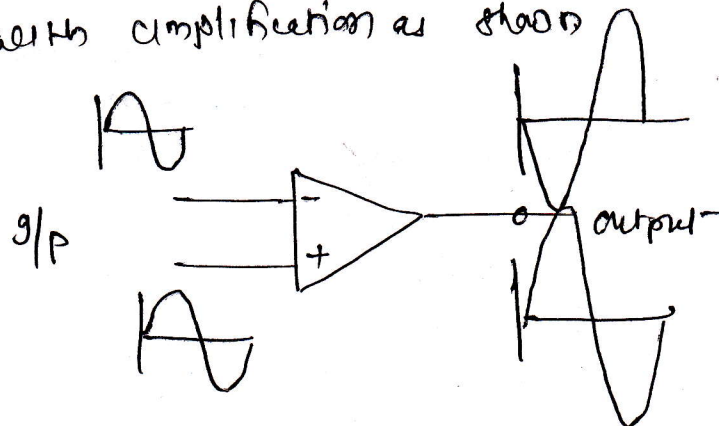 with amplification as shown
g/p
-
+
output